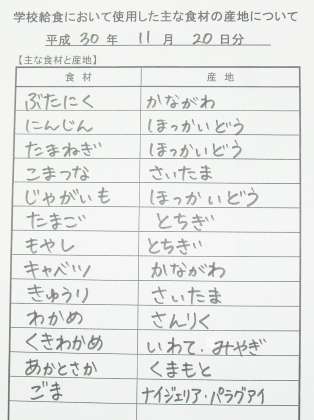 学校給食において使用した主な食材の産地について
平成 30 年 11 月 20 日分
【主な食材と産地】
食材 産地
ぶたにく かながわ
にんじん ほっかいどう
たまねぎ ほっかいどう
こまつな さいたま
じゃがいも ほっかいどう
たまご とちぎ
もやし とちぎ
キャベツ かながわ
きゅうり さいたま
わかめ さんりく
くきわかめ いわて．みやぎ
あかとさか くまもと
ごま ナイジェリア・パラグアイ